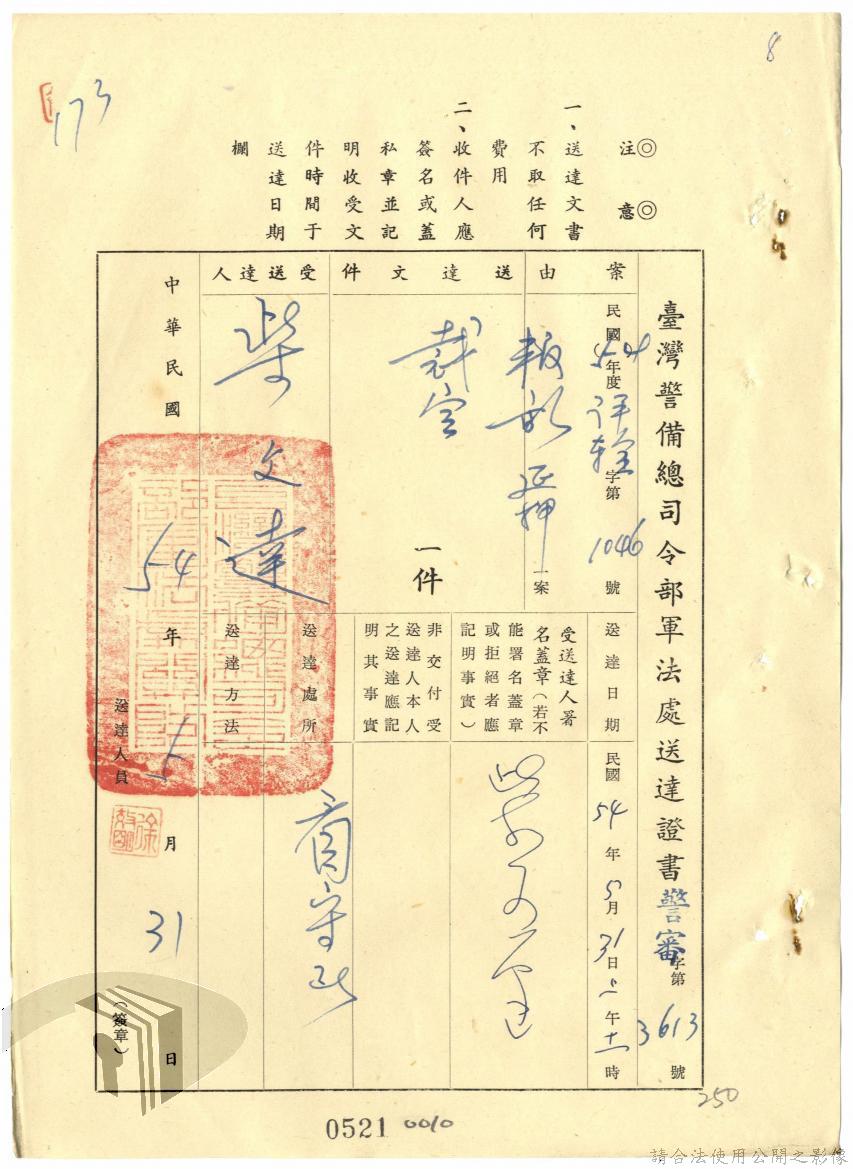 8
173
◎注意◎
一、送達文書
不取任何
費用
二、收件人應
簽名或蓋
私章並記
明收受文
件時間于
送達日期
欄
臺灣警備總司令部軍法處送達證書警審字第3613號
案由
民國54年度
字第1046號
叛亂延押一案
送達文件
裁定
一件
受送達人
柴文達
送達日期
民國54年5月31日上午十一時
受送達人署
名蓋章(若不
能署名蓋章
或拒絕者應
記明事實)
柴文達
非交付受
送達人本人
之送達應記
明其事實
送達處所
看守所
送達方法
中華民國54年5月31日
送達人員
(簽章)
250
0521 0010
請合法使用公開之影像